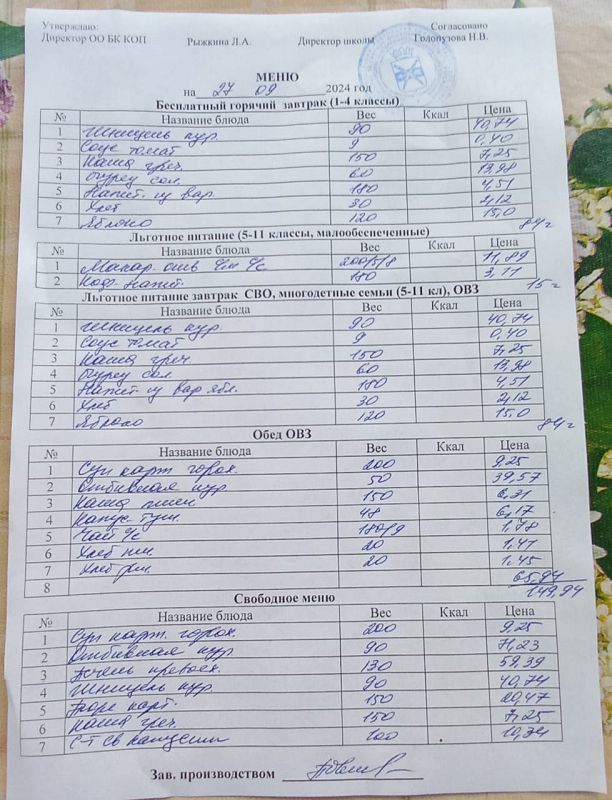 Утверждаю: Согласовано
Директор ОО БК КОП Рыжкина Л.А. Директор школы Голопузова Н.В.
МЕНЮ
на 27 09 2024 год
Бесплатный горячий завтрак (1-4 классы)
№ Название блюда Вес Ккал Цена
1 Шницель кур. 90 40,74
2 Соус томат 9 0,40
3 Каша греч. 150 7,25
4 Огурец сол. 60 13,98
5 Напит. из вар 180 4,51
6 Хлеб 30 2,12
7 Яблоко 120 15,0
84
Льготное питание (5-11 классы, малообеспеченные)
№ Название блюда Вес Ккал Цена
1 Макар. отв 200/5/8 11,89
2 Коф. Напит. 180 3,11
15
Льготное питание завтрак СВО, многодетные семьи (5-11 кл), ОВЗ
№ Название блюда Вес Ккал Цена
1 Шницель кур. 90 40,74
2 Соус томат 9 0,40
3 Каша греч. 150 7,25
4 Огурец сол. 60 13,98
5 Напит. из вар ябл. 180 4,51
6 Хлеб 30 2,12
7 Яблоко 120 15,0
84
Обед ОВЗ
№ Название блюда Вес Ккал Цена
1 Суп карт. горох. 200 9,25
2 Отбивная кур. 50 39,57
3 Каша пшен 150 6,31
4 Капус. туш. 48 6,17
5 Чай 180/9 1,78
6 Хлеб пш. 20 1,41
7 Хлеб рж. 20 1,45
8 65,94
149,94
Свободное меню
№ Название блюда Вес Ккал Цена
1 Суп карт. горох. 200 9,25
2 Отбивная кур 90 71,23
3 Печень 130 59,39
4 Шницель кур. 90 40,74
5 Пюре карт. 150 20,47
6 Каша греч. 150 7,25
7 С-т св капусты 100 10,34
Зав. производством